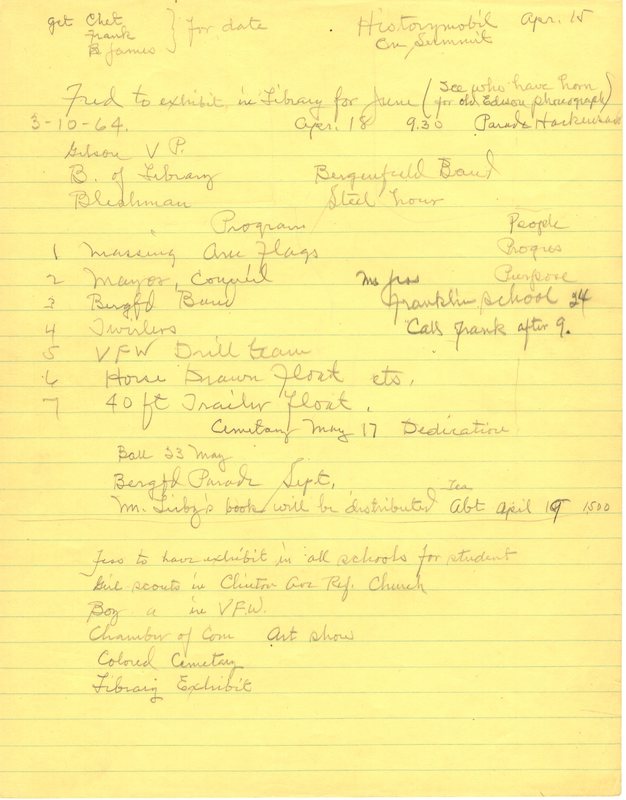 get Chet
Frank } for date
B James
Historymobil Apr. 15
on Summit
Fred to exhibit in Library for June (See who have horn
for old Edison phonograph)
3-10-64. Apr. 18 9.30 Parade Hackensack
Gibson V P.
B. of Library Bergenfield Band
Bleshman Steel hour
Program People
1 Massing Flags Progres
2 Mayor, Council Purpose
3 Bergfd Band Franklin School 24
4 Twirlers Call Frank after 9.
5 VFW Drill team
6 Horse Drawn Float ets.
7 40 ft Trailer Float.
Cemetary May 17 Dedication
Ball 23 May
Bergfd Parade Sept.
Tea
Mr. book will be distributed Abt April 19 1500
to have exhibit in all schools for student
Girl scouts in Clinton Ave Ref. Church
Boy in VFW.
Chamber of Com Art show
Colored Cemetary
Library Exhibit